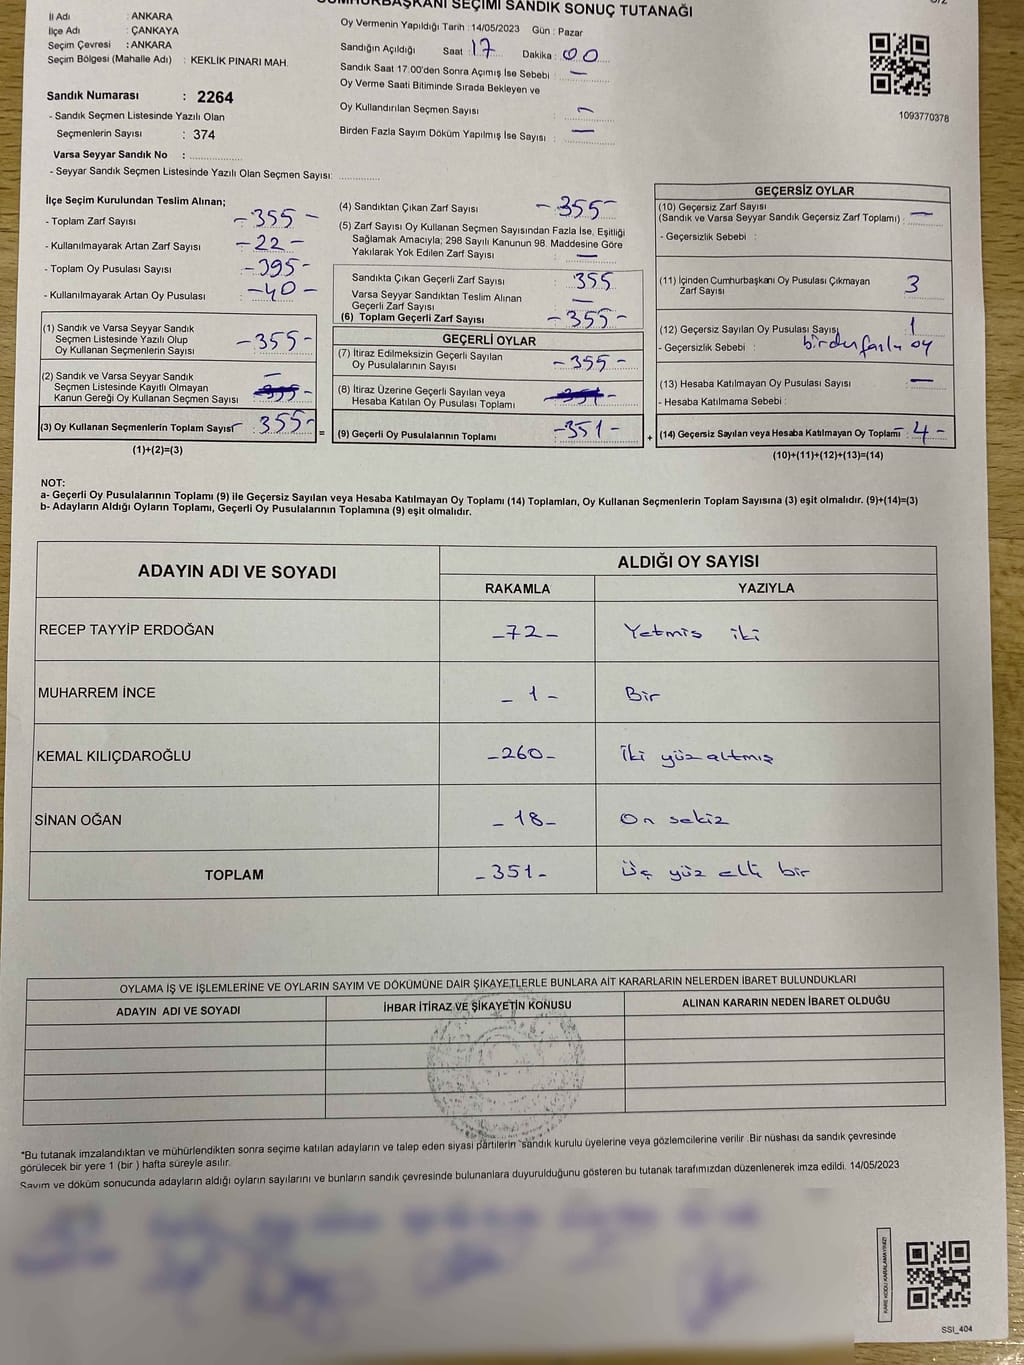 CUMHURBAŞKANI SEÇİMİ SANDIK SONUÇ TUTANAĞI
İl Adı : ANKARA
İlçe Adı : ÇANKAYA
Seçim Çevresi : ANKARA
Seçim Bölgesi (Mahalle Adı) : KEKLİK PINARI MAH.
Sandık Numarası : 2264
- Sandık Seçmen Listesinde Yazılı Olan
Seçmenlerin Sayısı : 374
Varsa Seyyar Sandık No :
- Seyyar Sandık Seçmen Listesinde Yazılı Olan Seçmen Sayısı:
Oy Vermenin Yapıldığı Tarih : 14/05/2023 Gün : Pazar
Sandığın Açıldığı Saat : 17 Dakika : 00
Sandık Saat 17:00'den Sonra Açımış İse Sebebi : —
Oy Verme Saati Bitiminde Sırada Bekleyen ve
Oy Kullandırılan Seçmen Sayısı : —
Birden Fazla Sayım Döküm Yapılmış İse Sayısı : —
1093770378
İlçe Seçim Kurulundan Teslim Alınan;
- Toplam Zarf Sayısı : -355-
- Kullanılmayarak Artan Zarf Sayısı : -22-
- Toplam Oy Pusulası Sayısı : -395-
- Kullanılmayarak Artan Oy Pusulası : -40-
(1) Sandık ve Varsa Seyyar Sandık
Seçmen Listesinde Yazılı Olup
Oy Kullanan Seçmenlerin Sayısı : -355-
(2) Sandık ve Varsa Seyyar Sandık
Seçmen Listesinde Kayıtlı Olmayan
Kanun Gereği Oy Kullanan Seçmen Sayısı : —
(3) Oy Kullanan Seçmenlerin Toplam Sayısı : 355-
(1)+(2)=(3)
(4) Sandıktan Çıkan Zarf Sayısı : -355-
(5) Zarf Sayısı Oy Kullanan Seçmen Sayısından Fazla İse, Eşitliği
Sağlamak Amacıyla; 298 Sayılı Kanunun 98. Maddesine Göre
Yakılarak Yok Edilen Zarf Sayısı : —
Sandıkta Çıkan Geçerli Zarf Sayısı : 355
Varsa Seyyar Sandıktan Teslim Alınan
Geçerli Zarf Sayısı : —
(6) Toplam Geçerli Zarf Sayısı : -355-
GEÇERLİ OYLAR
(7) İtiraz Edilmeksizin Geçerli Sayılan
Oy Pusulalarının Sayısı : -355-
(8) İtiraz Üzerine Geçerli Sayılan veya
Hesaba Katılan Oy Pusulası Toplamı :
= (9) Geçerli Oy Pusulalarının Toplamı : -351- +
GEÇERSİZ OYLAR
(10) Geçersiz Zarf Sayısı
(Sandık ve Varsa Seyyar Sandık Geçersiz Zarf Toplamı) : —
- Geçersizlik Sebebi :
(11) İçinden Cumhurbaşkanı Oy Pusulası Çıkmayan
Zarf Sayısı : 3
(12) Geçersiz Sayılan Oy Pusulası Sayısı : 1
- Geçersizlik Sebebi : birden fazla oy
(13) Hesaba Katılmayan Oy Pusulası Sayısı : —
- Hesaba Katılmama Sebebi :
(14) Geçersiz Sayılan veya Hesaba Katılmayan Oy Toplamı : -4-
(10)+(11)+(12)+(13)=(14)
NOT:
a- Geçerli Oy Pusulalarının Toplamı (9) ile Geçersiz Sayılan veya Hesaba Katılmayan Oy Toplamı (14) Toplamları, Oy Kullanan Seçmenlerin Toplam Sayısına (3) eşit olmalıdır. (9)+(14)=(3)
b- Adayların Aldığı Oyların Toplamı, Geçerli Oy Pusulalarının Toplamına (9) eşit olmalıdır.
ADAYIN ADI VE SOYADI ALDIĞI OY SAYISI
RAKAMLA YAZIYLA
RECEP TAYYİP ERDOĞAN -72- Yetmiş iki
MUHARREM İNCE -1- Bir
KEMAL KILIÇDAROĞLU -260- İki yüz altmış
SİNAN OĞAN -18- On sekiz
TOPLAM -351- Üç yüz elli bir
OYLAMA İŞ VE İŞLEMLERİNE VE OYLARIN SAYIM VE DÖKÜMÜNE DAİR ŞİKAYETLERLE BUNLARA AİT KARARLARIN NELERDEN İBARET BULUNDUKLARI
ADAYIN ADI VE SOYADI İHBAR İTİRAZ VE ŞİKAYETİN KONUSU ALINAN KARARIN NEDEN İBARET OLDUĞU
*Bu tutanak imzalandıktan ve mühürlendikten sonra seçime katılan adayların ve talep eden siyasi partilerin sandık kurulu üyelerine veya gözlemcilerine verilir. Bir nüshası da sandık çevresinde
görülecek bir yere 1 (bir ) hafta süreyle asılır.
Sayım ve döküm sonucunda adayların aldığı oyların sayılarını ve bunların sandık çevresinde bulunanlara duyurulduğunu gösteren bu tutanak tarafımızdan düzenlenerek imza edildi. 14/05/2023
KARE KODU KARALAMAYINIZ!
SSI_404